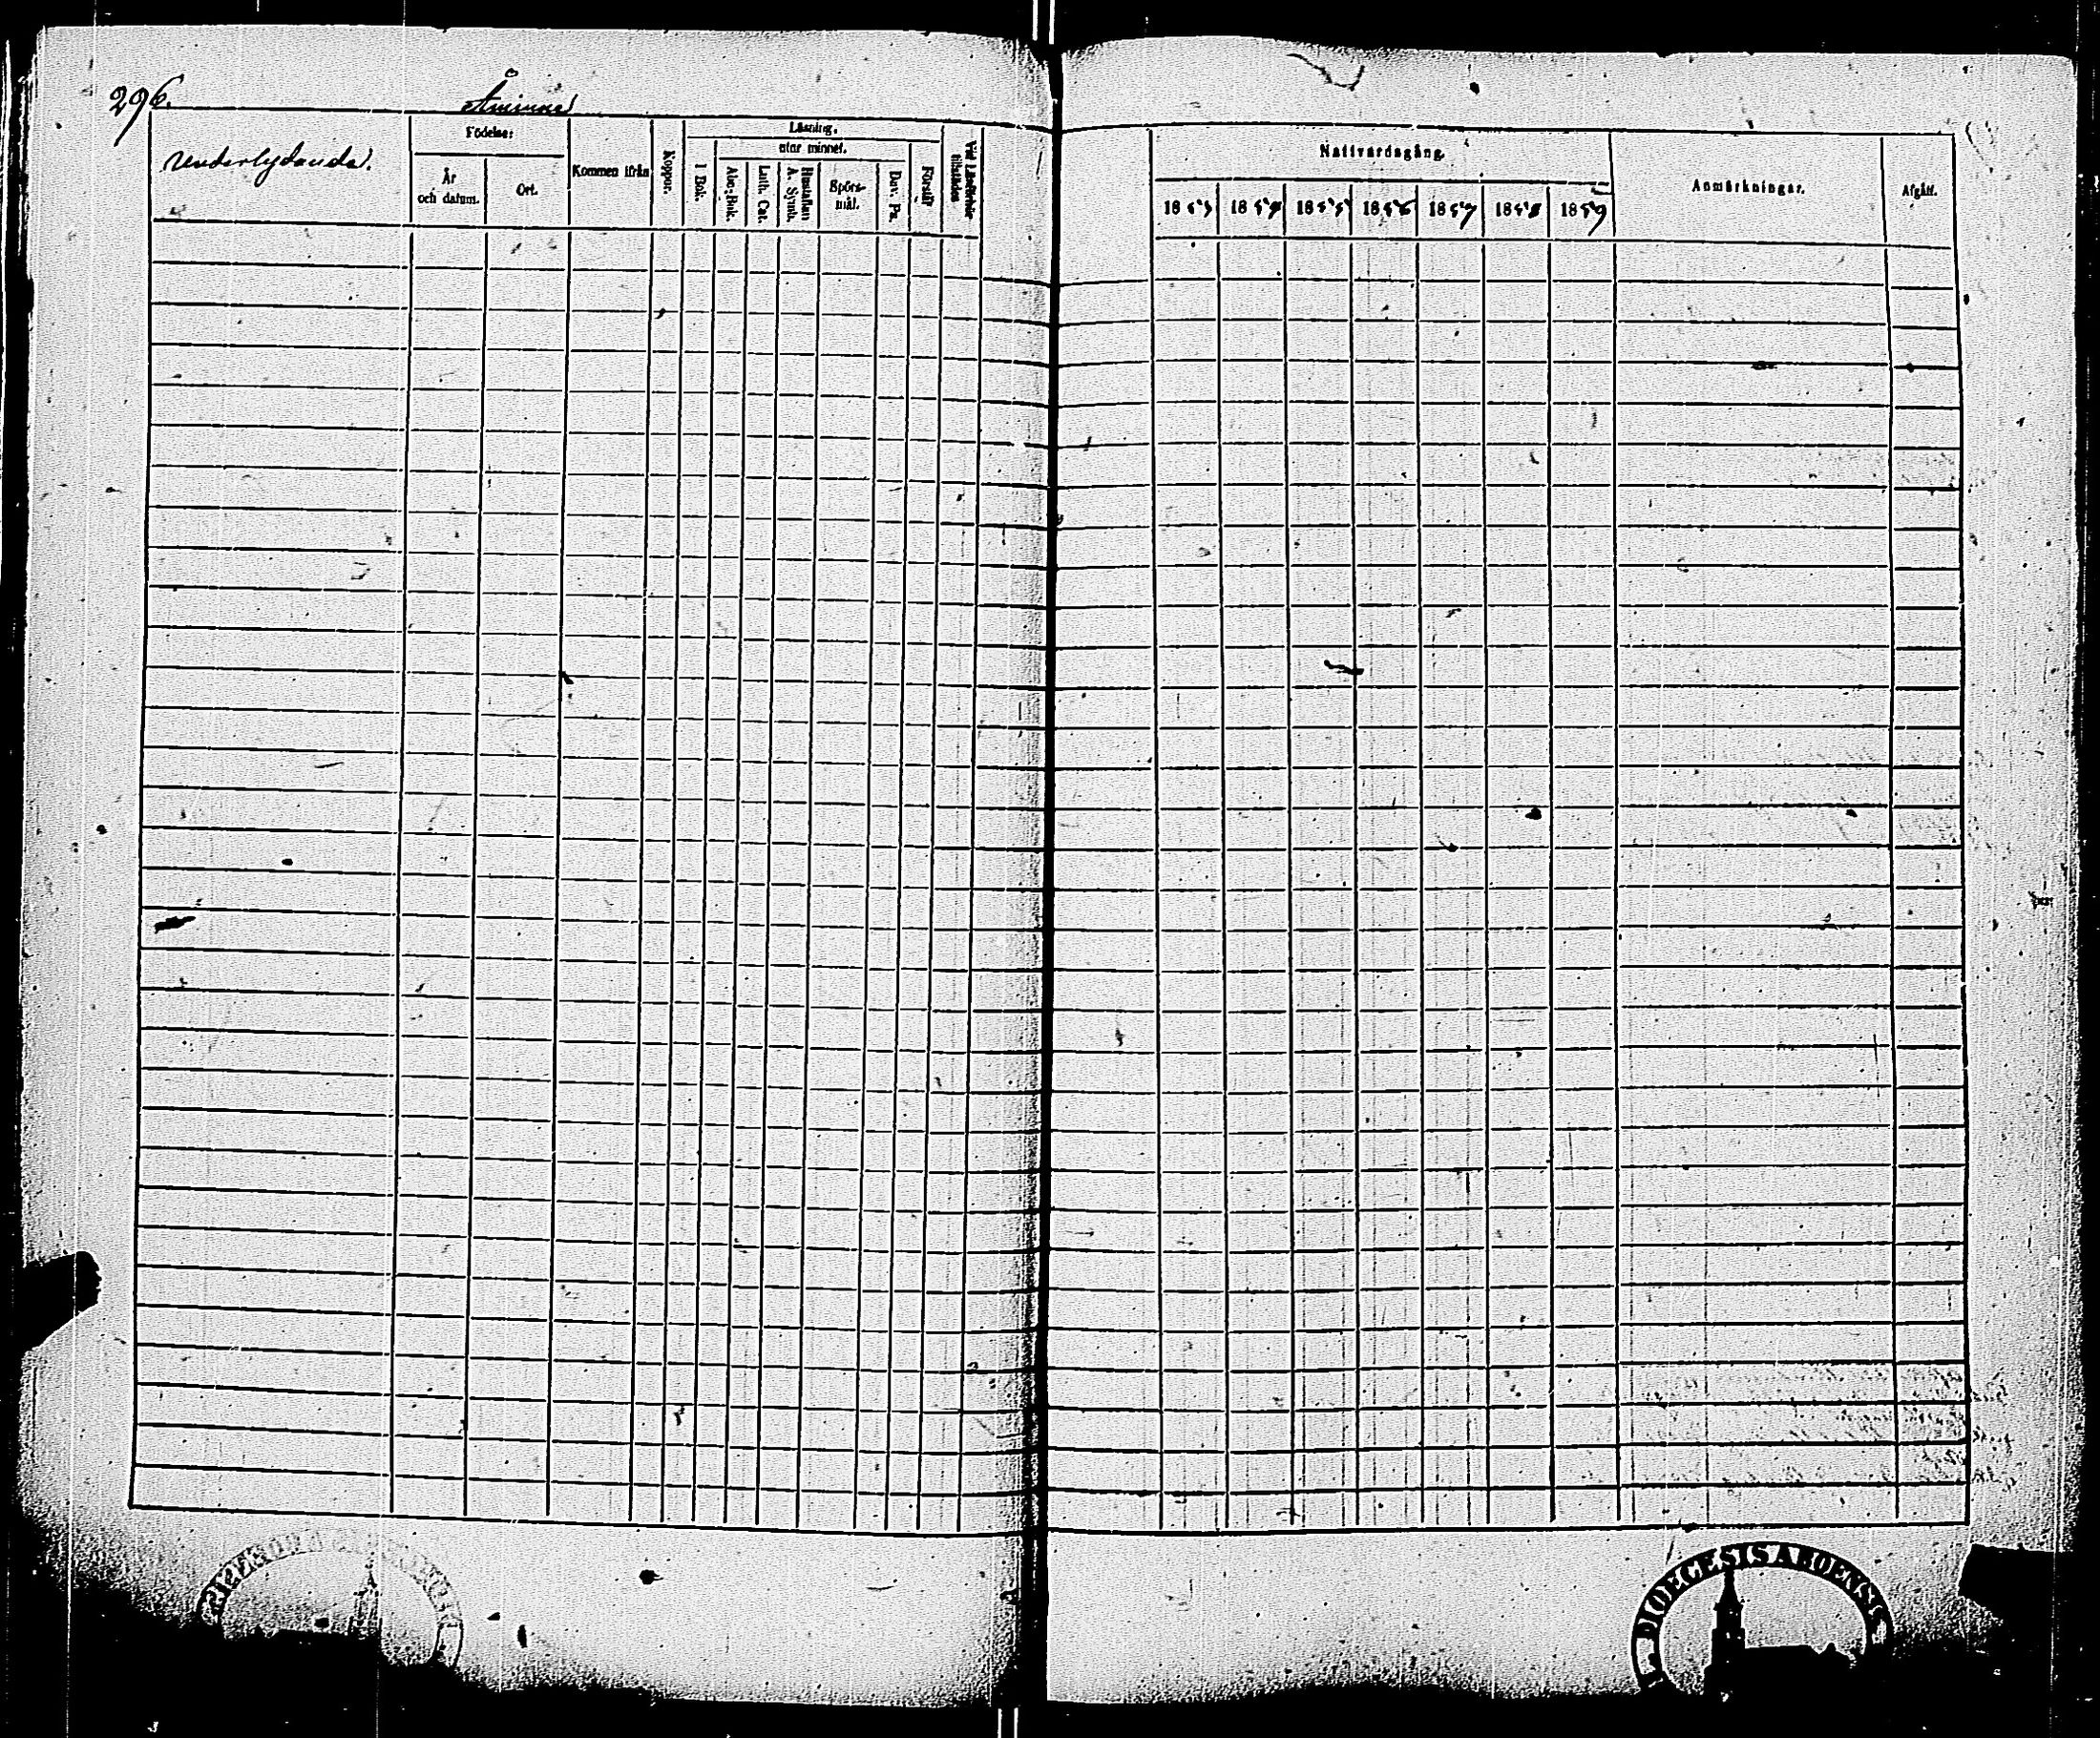 296.
Åminne
Underlydande.
Födelse:
År
och datum.
Ort.
Kommen ifrån
Koppor.
Läsning.
I Bok.
utar minnet.
Abc-Bok.
Luth. Cat.
Hustaflan
A. Symb.
Spörs-
mål.
Dav. Ps.
Förstår
Vid Läsförhör
tillstädes
Nattvardsgång.
1853
1854
1855
1856
1857
1858
1859
Anmärkningar.
Afgått.
DIOECESIS ABOENSIS